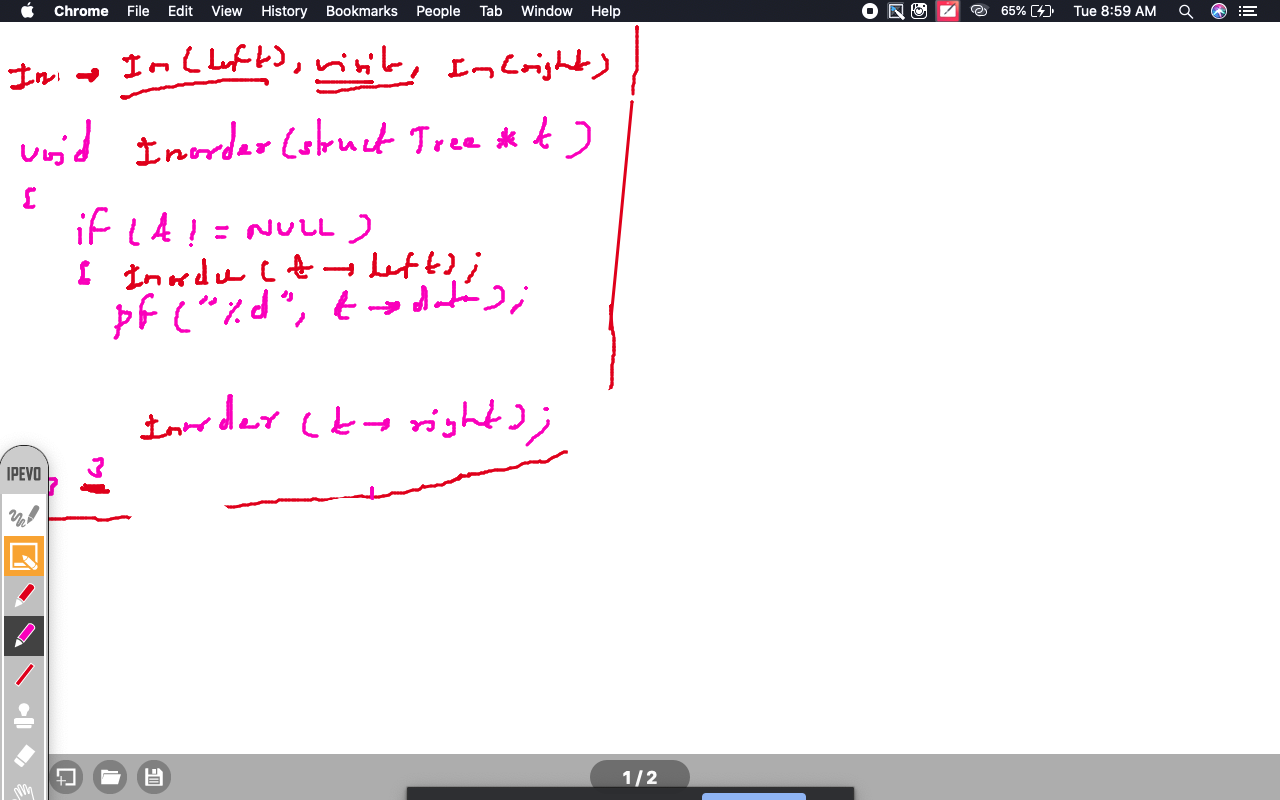 Chrome File Edit View History Bookmarks People Tab Window Help 65% Tue 8:59 AM
In → In(left), visit, In(right)
void Inorder(struct Tree * t)
{
if (t != NULL)
{ Inorder(t → left);
pf("%d", t → data);
Inorder(t → right);
} }
IPEVO
1 / 2